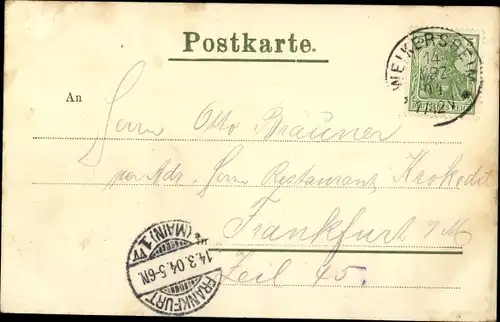 Postkarte.
WEIKERSHEIM
14
MRZ
04
An
Herrn Otto Bräuner
per Adr. Herrn Restaurant Krokodil
Frankfurt a/M
Zeil 45.
FRANKFURT (MAIN) 1
14.3.04.5-6N.